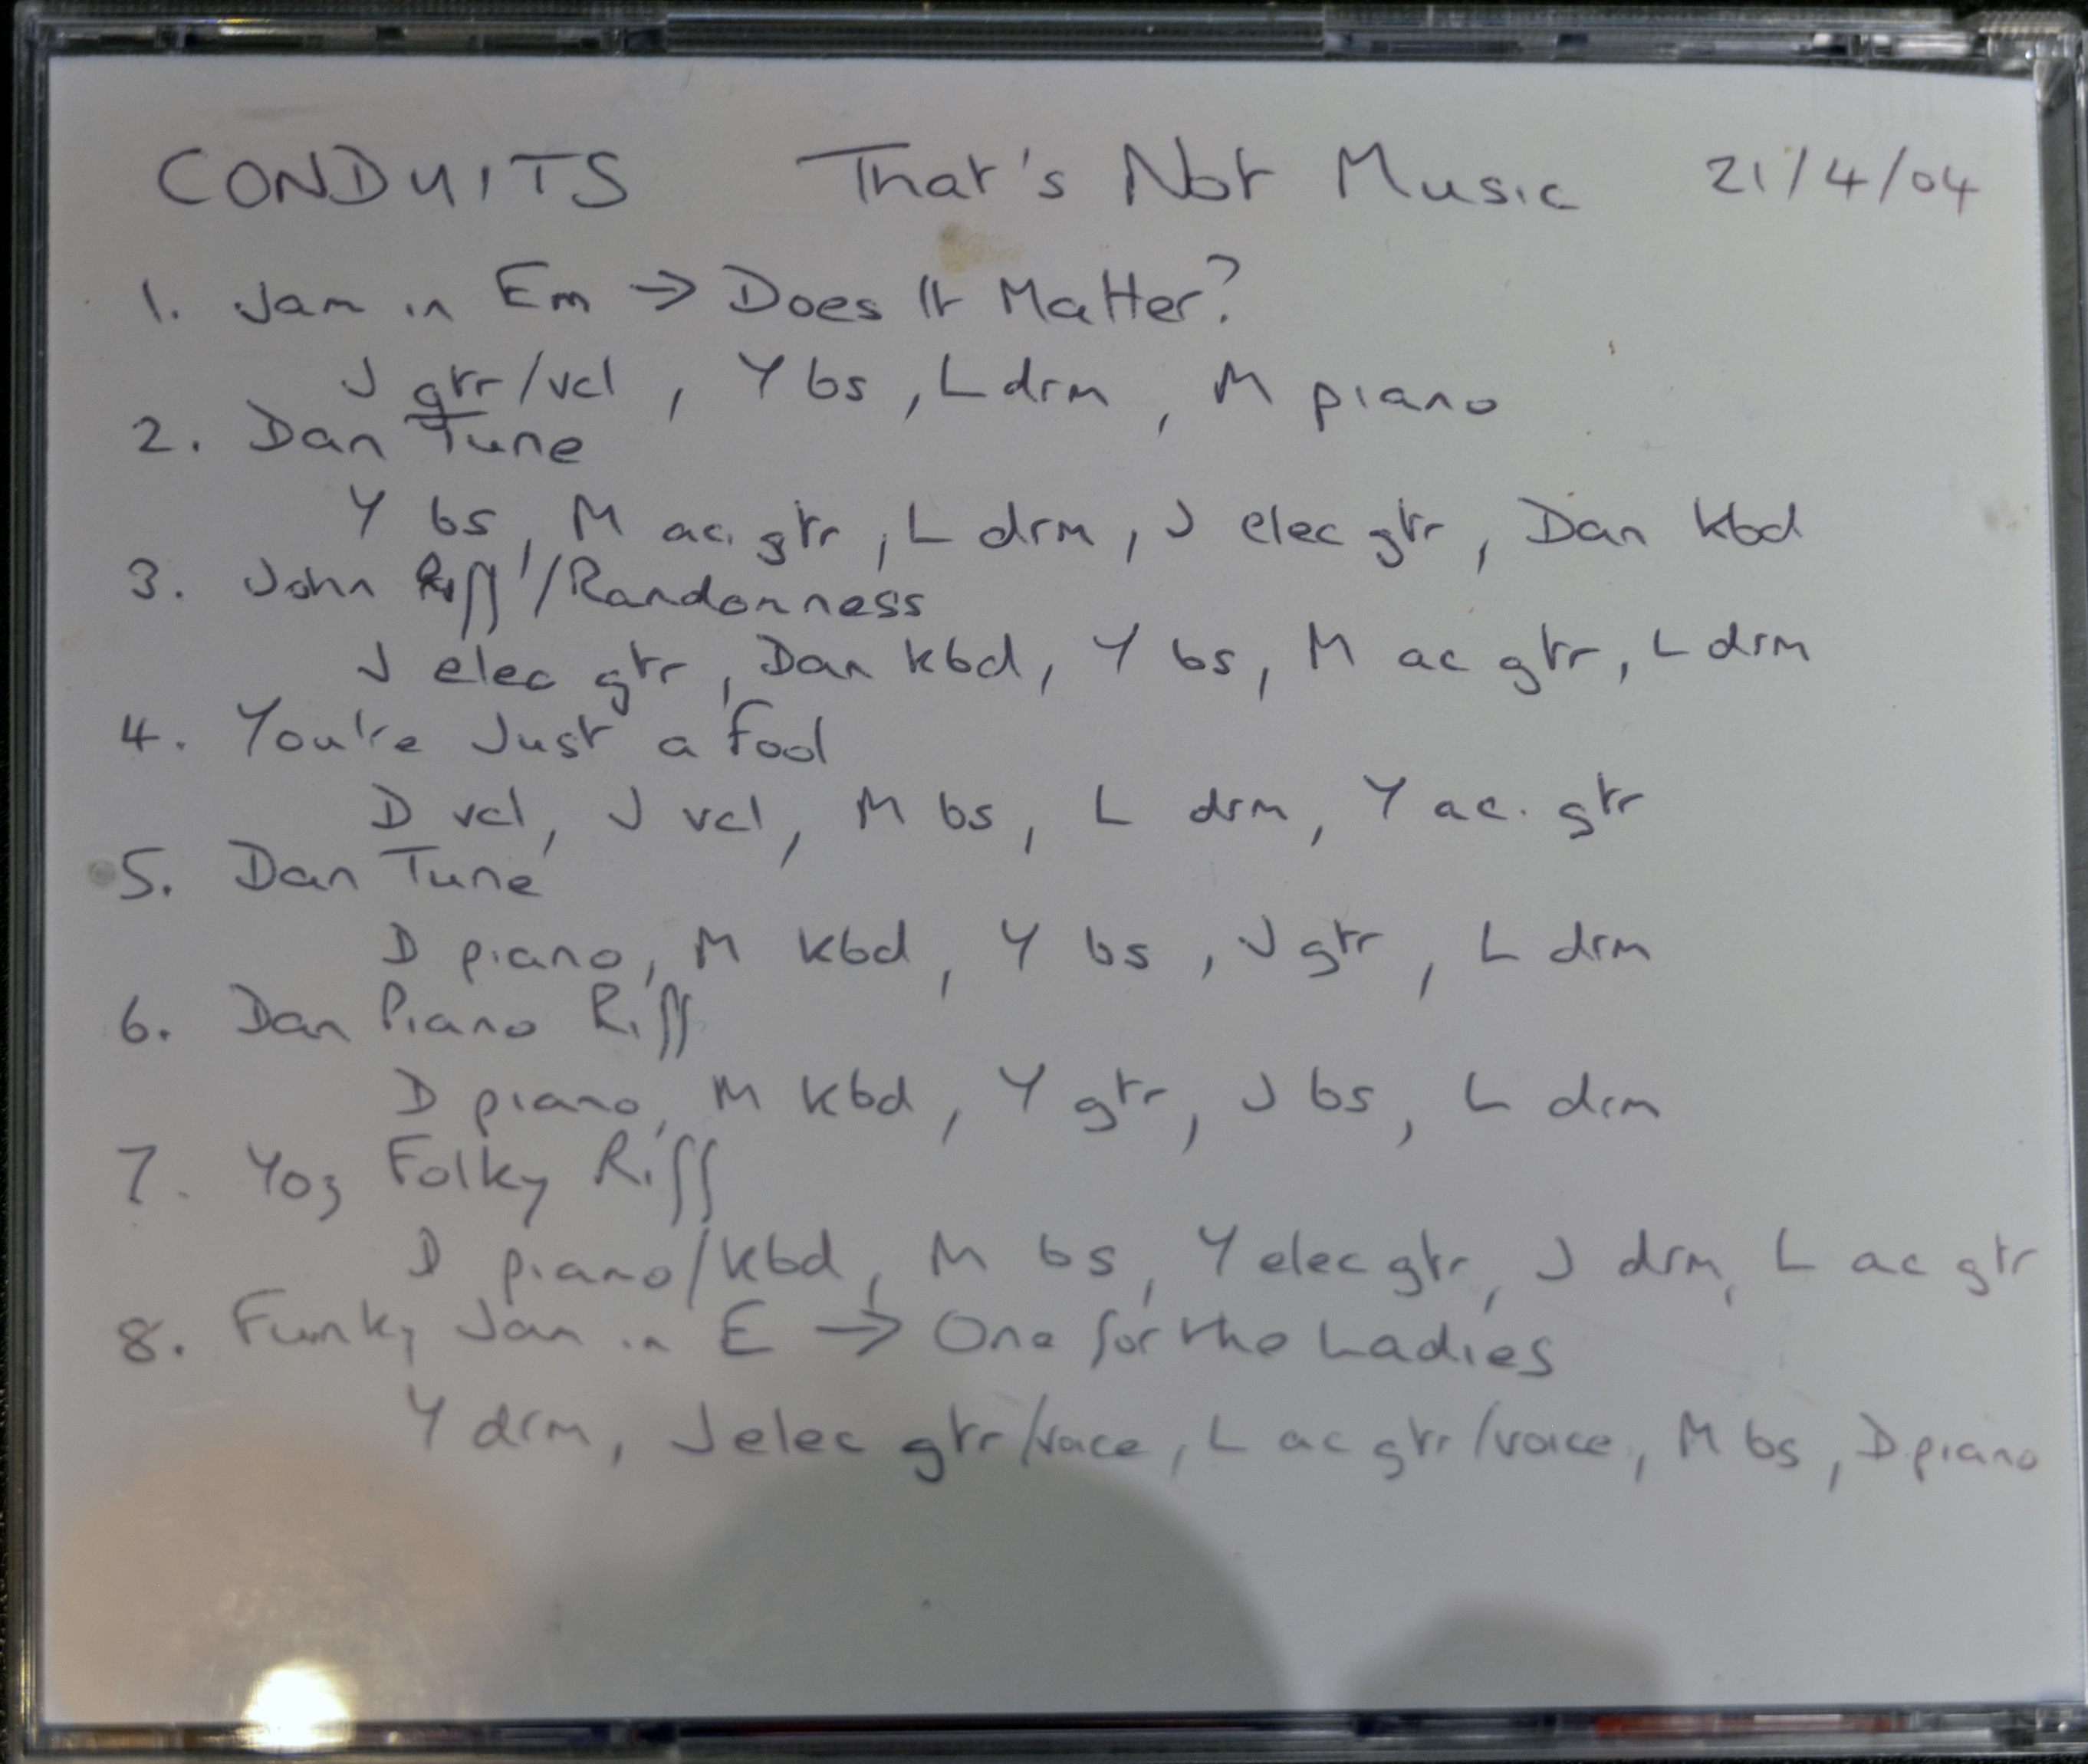 CONDUITS That's Not Music 21/4/04
1. Jam in Em → Does It Matter?
J gtr/vcl, Y bs, L drm, M piano
2. Dan Tune
Y bs, M ac. gtr, L drm, J elec gtr, Dan kbd
3. John Riff/Randomness
J elec gtr, Dan kbd, Y bs, M ac gtr, L drm
4. You're Just a Fool
D vcl, J vcl, M bs, L drm, Y ac. gtr
5. Dan Tune
D piano, M kbd, Y bs, J gtr, L drm
6. Dan Piano Riff
D piano, M kbd, Y gtr, J bs, L drm
7. Yoz Folky Riff
D piano/kbd, M bs, Y elec gtr, J drm, L ac gtr
8. Funky Jam in E → One for the Ladies
Y drm, J elec gtr/voice, L ac gtr/voice, M bs, D piano